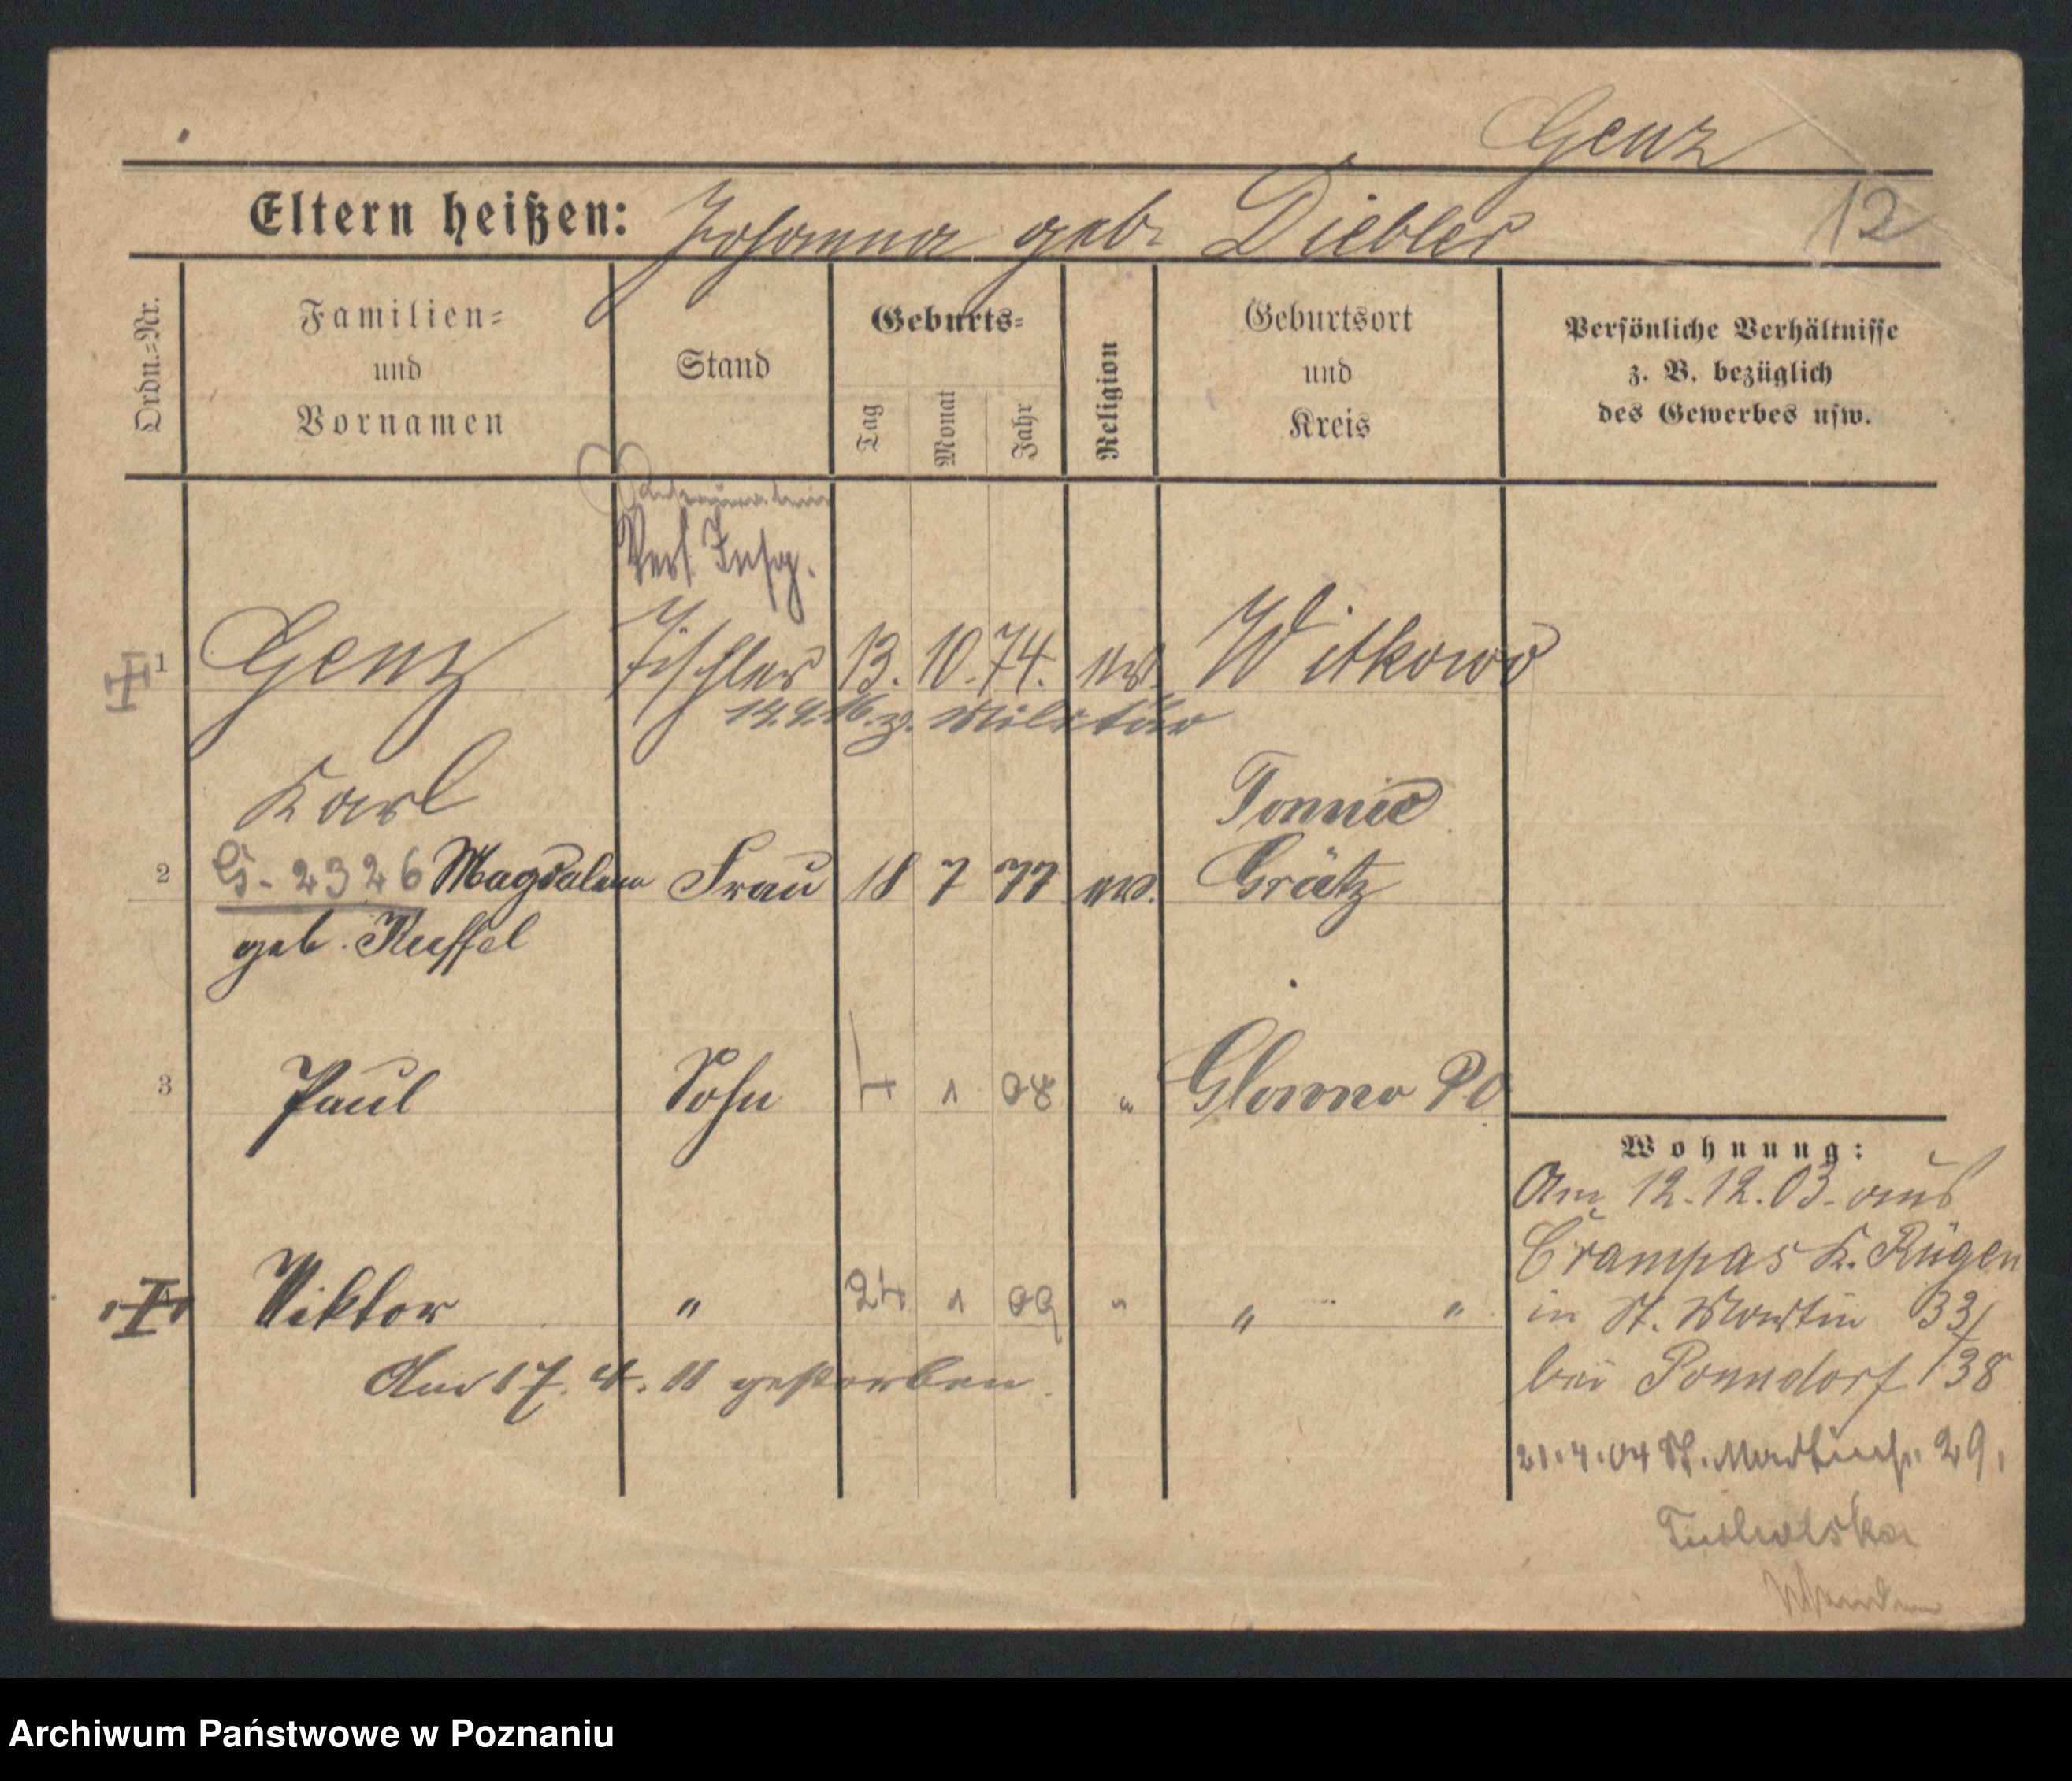 Genz
12
Eltern heißen: Johanna geb. Diebler
Ordn.=Nr.
Familien=
und
Vornamen
Stand
Geburts=
Tag
Monat
Jahr
Religion
Geburtsort
und
Kreis
Persönliche Verhältnisse
z. B. bezüglich
des Gewerbes usw.
Vers. Insp.
1 Genz Tischler 13. 10. 74. ev. Witkowo
14.9.16. z. Militär
Karl
Tonnic
2 G. 2326 Magdalena Frau 18 7 77 ev. Grätz
geb. Ruffel
3 Paul Sohn 4 1 08 " Glowno PO
Viktor " 24 1 09 " " "
Am 17. 4. 11 gestorben.
Wohnung:
Am 12.12.03. aus
Crampas K. Rügen
in St. Martin 33/
bei Ponndorf 38
21.4.04 St. Martinstr. 29.